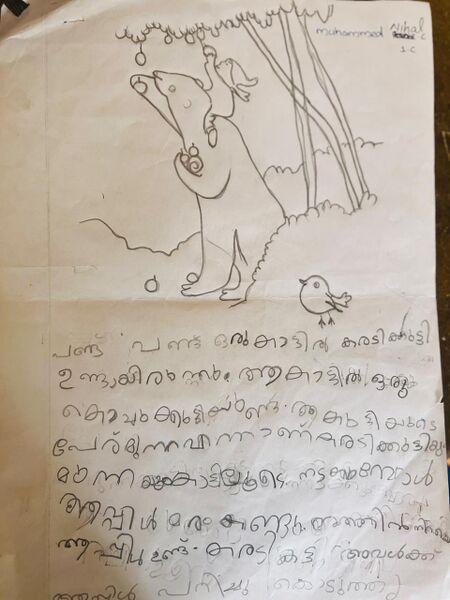 muhammed Nihal
1-C
പണ്ട് പണ്ട് ഒരു കാട്ടിൽ കരടികുട്ടി
ഉണ്ടായിരുന്നു. ആ കാട്ടിൽ ഒരു
കൊച്ചുകുട്ടിയുണ്ട്. ആ കുട്ടിയുടെ
പേര് മുന്ന എന്നാണ് കരടിക്കുട്ടിയും
മുന്നയും കാട്ടിലൂടെ നടക്കുമ്പോൾ
ആപ്പിൾ മരം കണ്ടു. അതിൽ നിറയെ
ആപ്പിൾ ഉണ്ട്. കരടികുട്ടി അവൾക്ക്
ആപ്പിൾ പറിച്ചു കൊടുത്തു